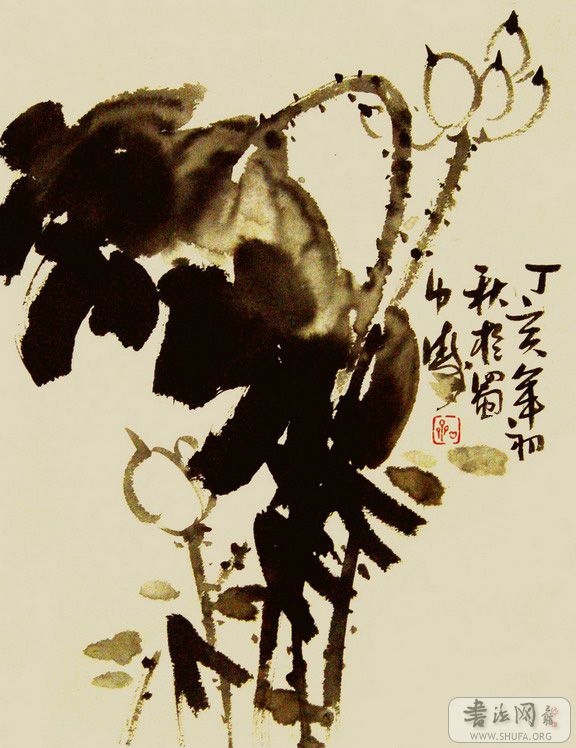 丁亥年初
秋於蜀
書法网
WWW.SHUFA.ORG